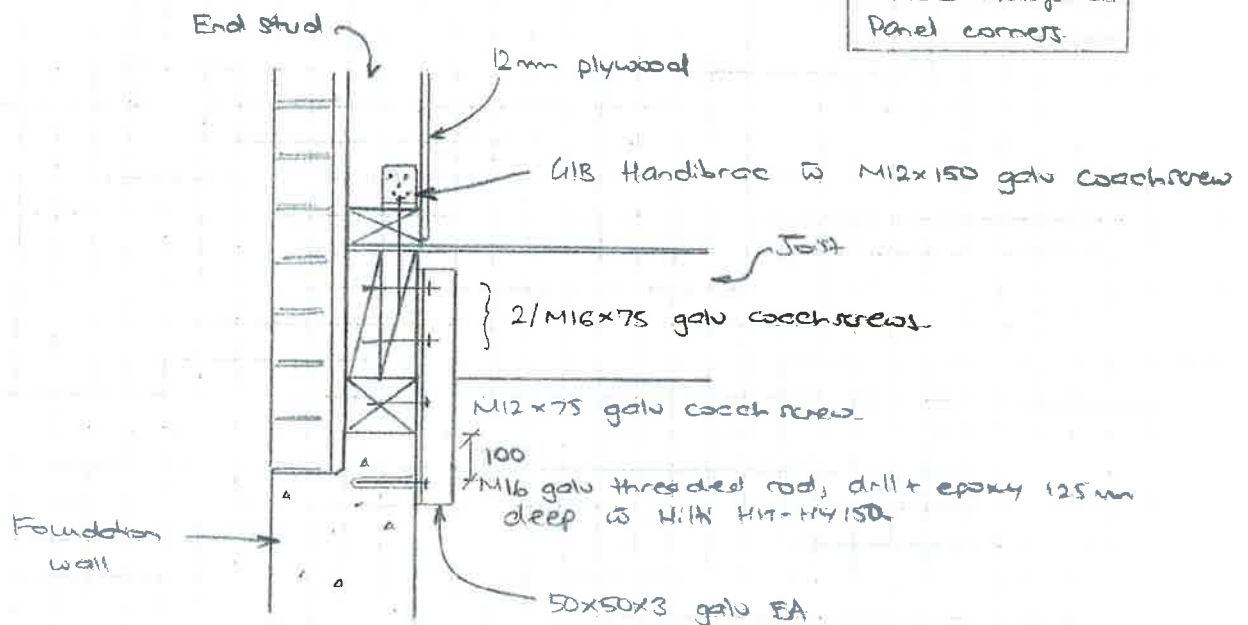 Panel corners.
End stud
12mm plywood
GIB Handibrac w̄ M12x150 galv coachscrew
Joist
2/M16x75 galv coachscrews
M12x75 galv coach screw
100
M16 galv threaded rod, drill + epoxy 125mm
deep w̄ Hilti
Foundation
wall
50x50x3 galv EA.